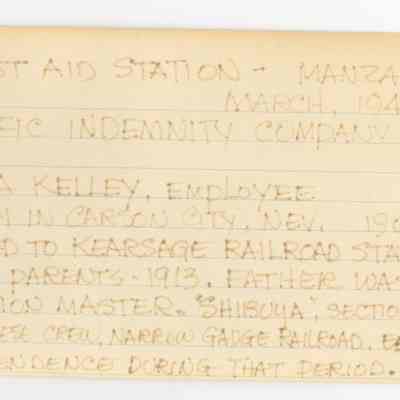 ST AID STATION - MANZA
MARCH, 194
FIC INDEMNITY COMPANY
A KELLEY, EMPLOYEE
IN CARSON CITY, NEV. 190
D TO KEARSAGE RAILROAD STA
PARENTS - 1913. FATHER WAS
ION MASTER. "SHIBUYA", SECTIO
ESE CREW, NARROW GADGE RAILROAD.
ENDENCE DURING THAT PERIOD.